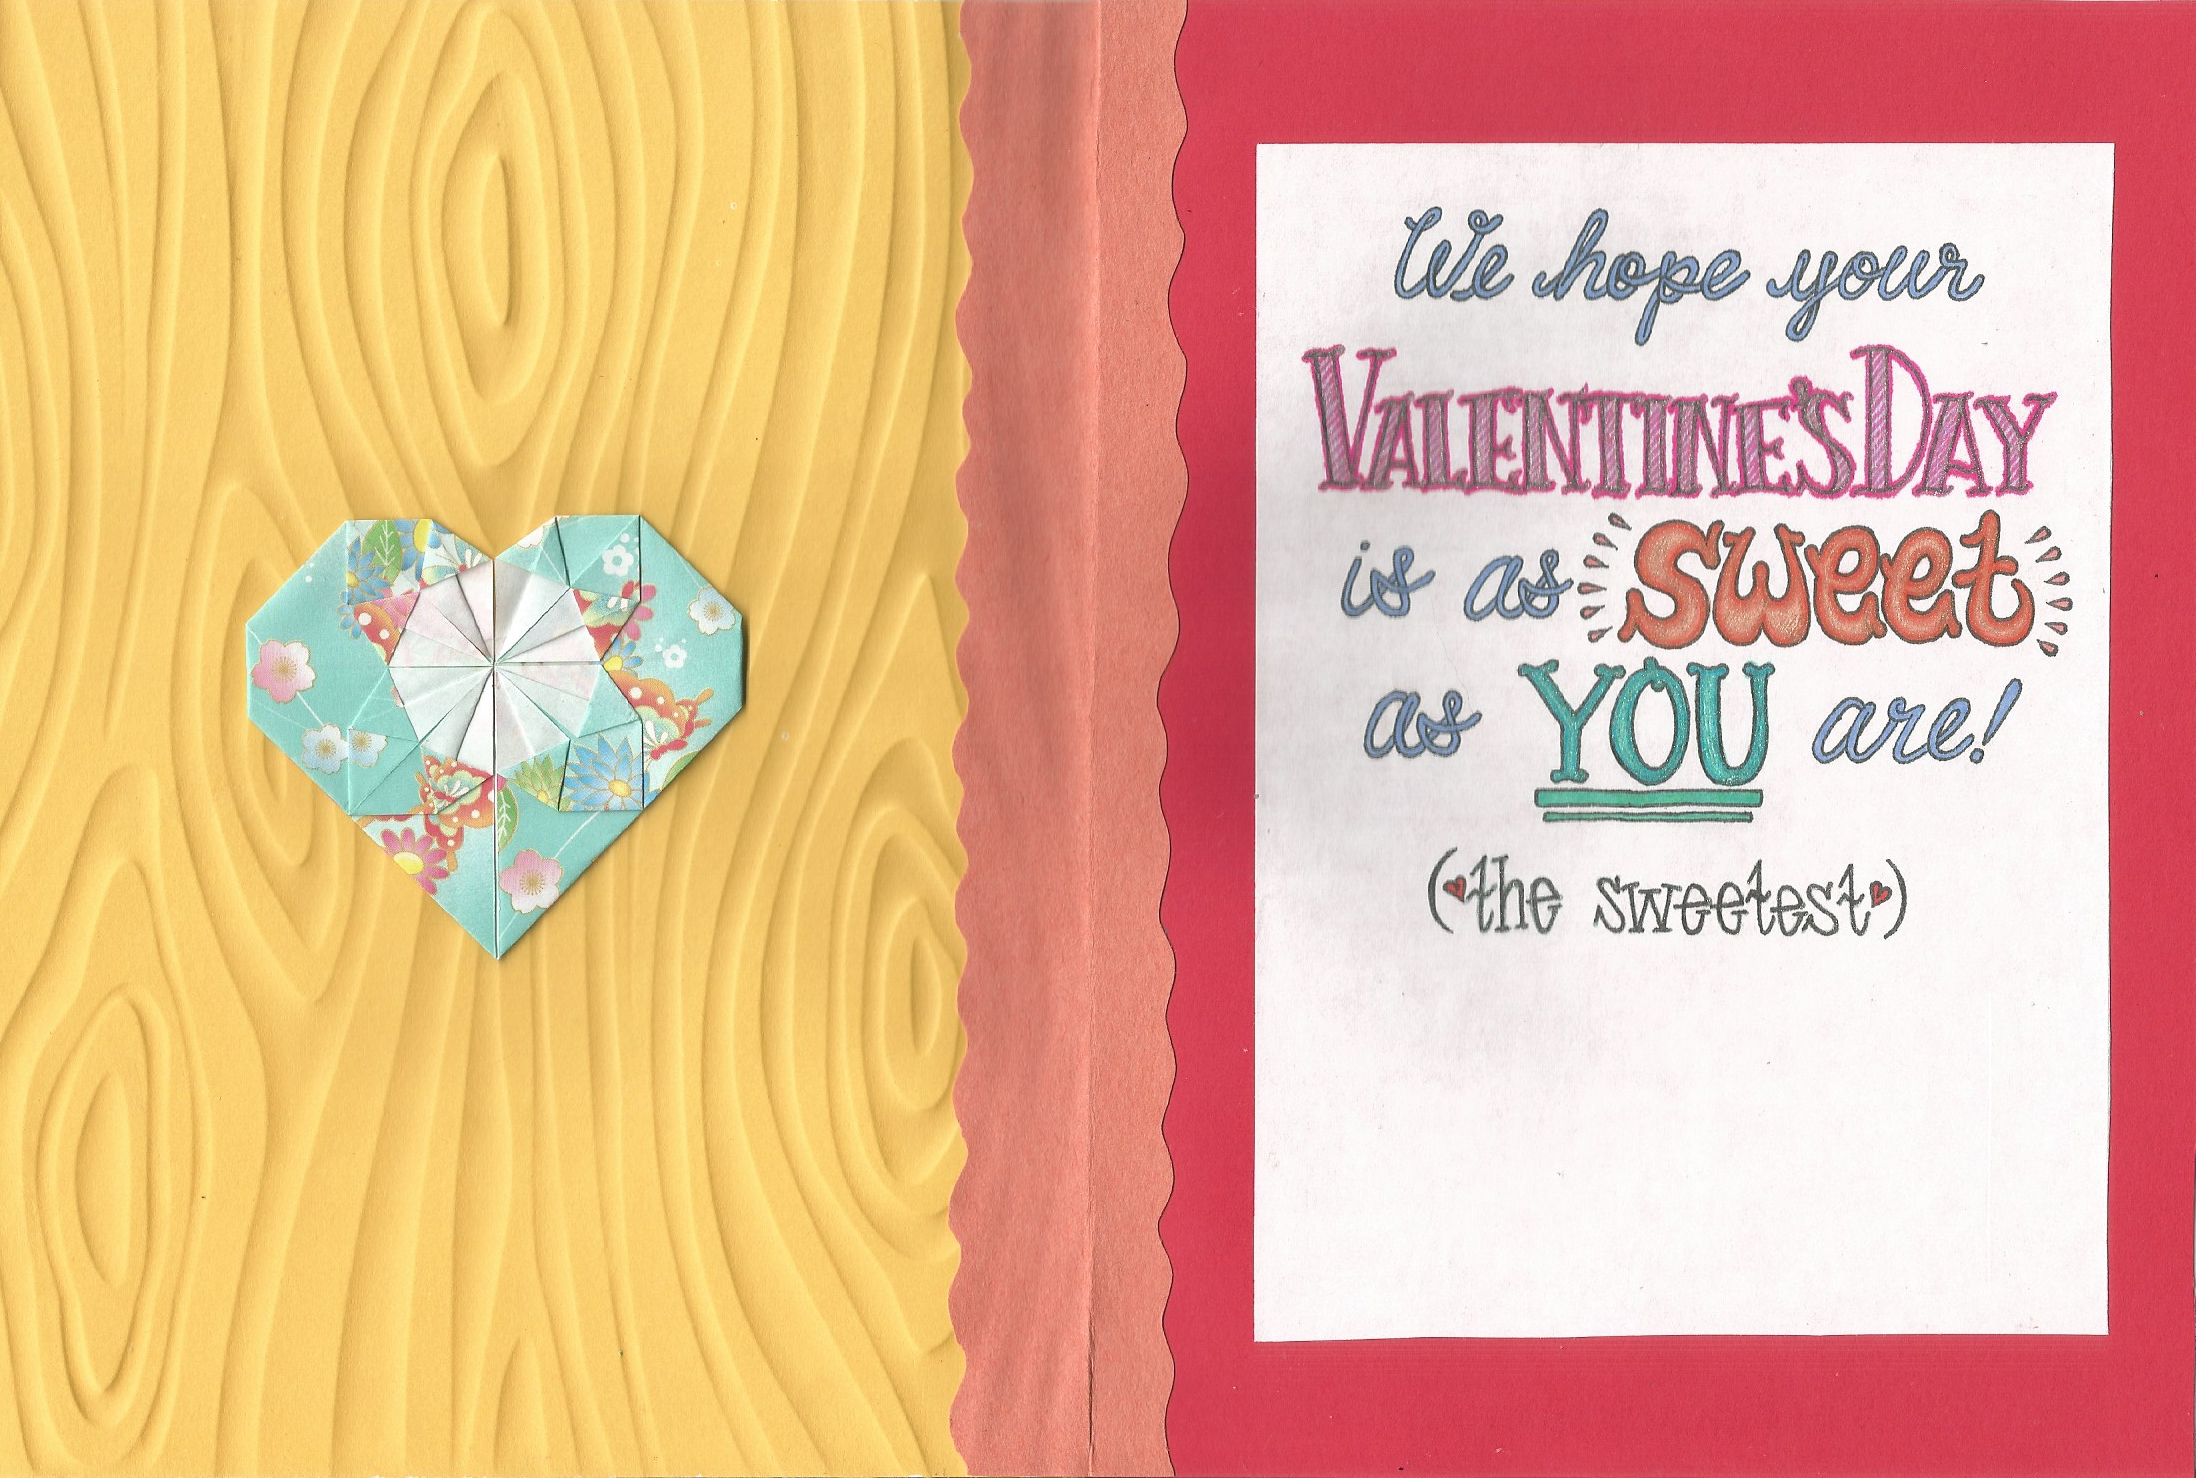 We hope your
VALENTINE'S DAY
is as sweet
as YOU are!
(the sweetest)